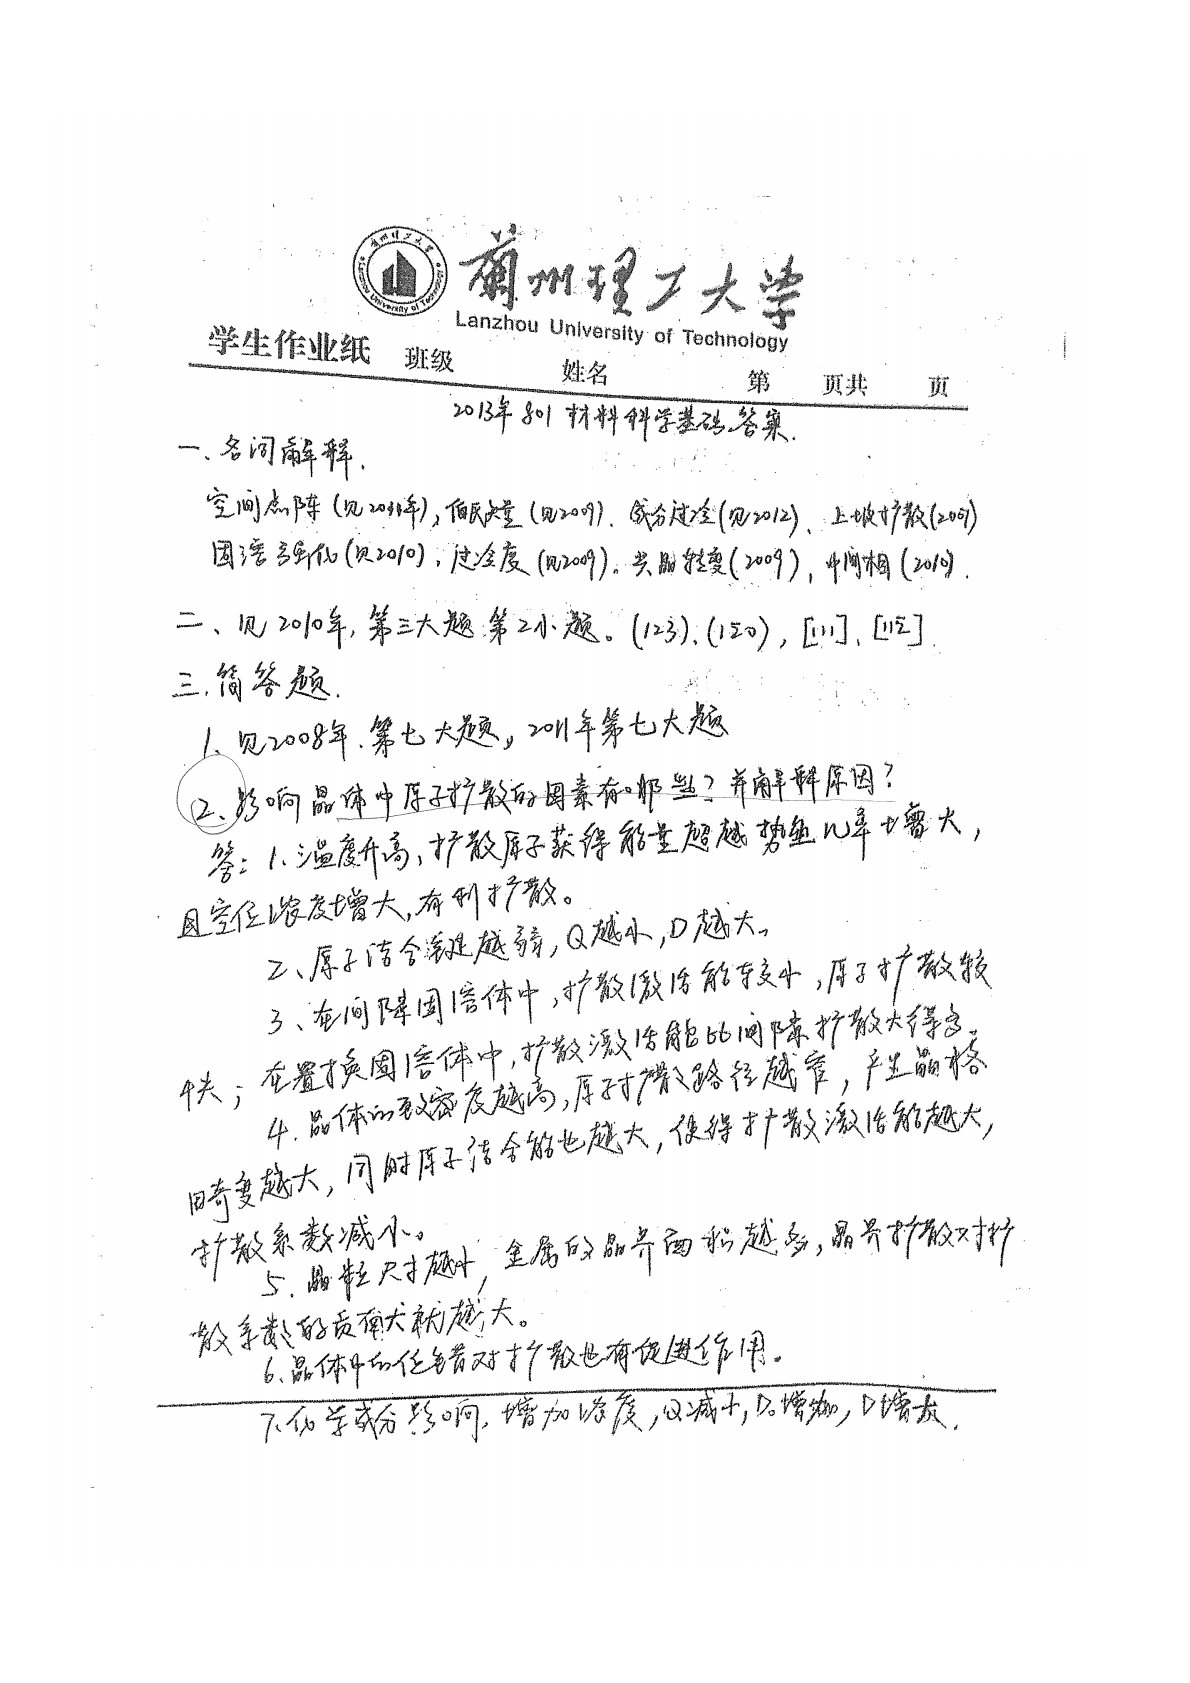 蘭州理工大学
Lanzhou University of Technology
学生作业纸 班级 姓名 第 页共 页
2013年801材料科学基础答案.
一、名词解释.
空间点阵(见2011年), 伯氏矢量(见2009). 成分过冷(见2012)、上坡扩散(2009)
固溶强化(见2010), 过冷度(见2009)。共晶转变(2009), 中间相(2010).
二、见2010年,第三大题第2小题。(123)、(120), [111]、[112].
三.简答题.
1、见2008年.第七大题, 2011年第七大题
2、影响晶体中原子扩散的因素有哪些?并解释原因?
答:1、温度升高,扩散原子获得能量超越势垒几率增大,
且空位浓度增大,有利扩散。
2、原子结合键越弱,Q越小,D越大。
3、在间隙固溶体中,扩散激活能较小,原子扩散较
快;在置换固溶体中,扩散激活能比间隙扩散大得多。
4.晶体的致密度越高,原子扩散路径越窄,产生晶格
畸变越大,同时原子结合能也越大,使得扩散激活能越大,
扩散系数减小。
5.晶粒尺寸越小,金属的晶界面积越多,晶界扩散对扩
散系数的贡献就越大。
6、晶体中的位错对扩散也有促进作用。
7.化学成分影响.增加浓度,Q减小,D。增加,D增大.